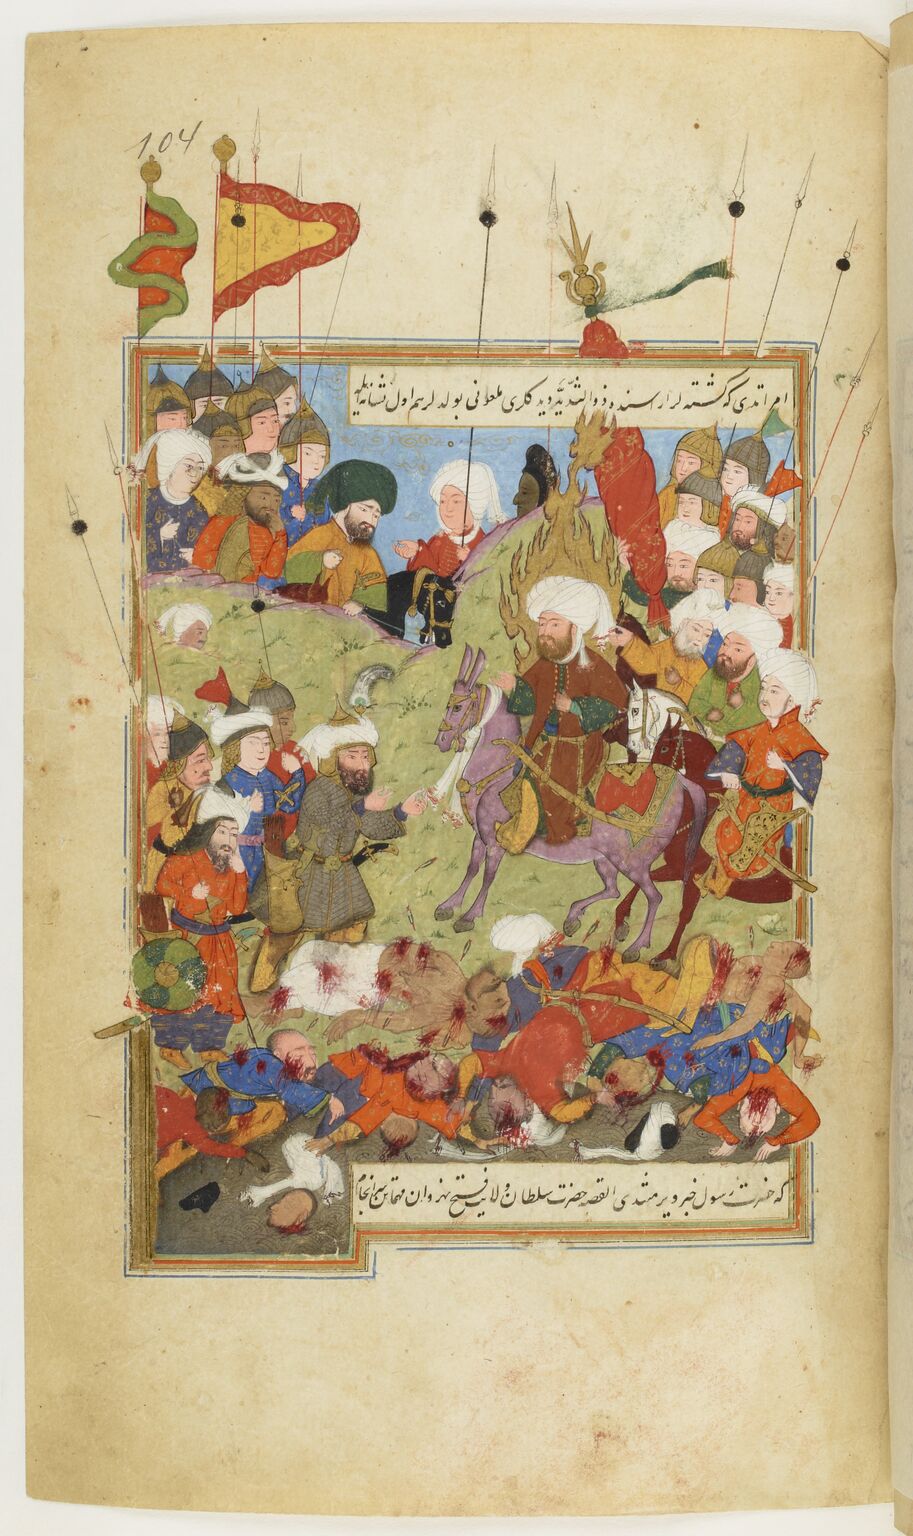 104
امر اتدی که کشته لر اراسنده ذو الثدیه دیدکلری ملعونی بولدلر هم اول نشانه ایله
که حضرت رسول خبر ویرمشدی القصه حضرت سلطان ولایت فتح نهروان مهماتن سرانجام